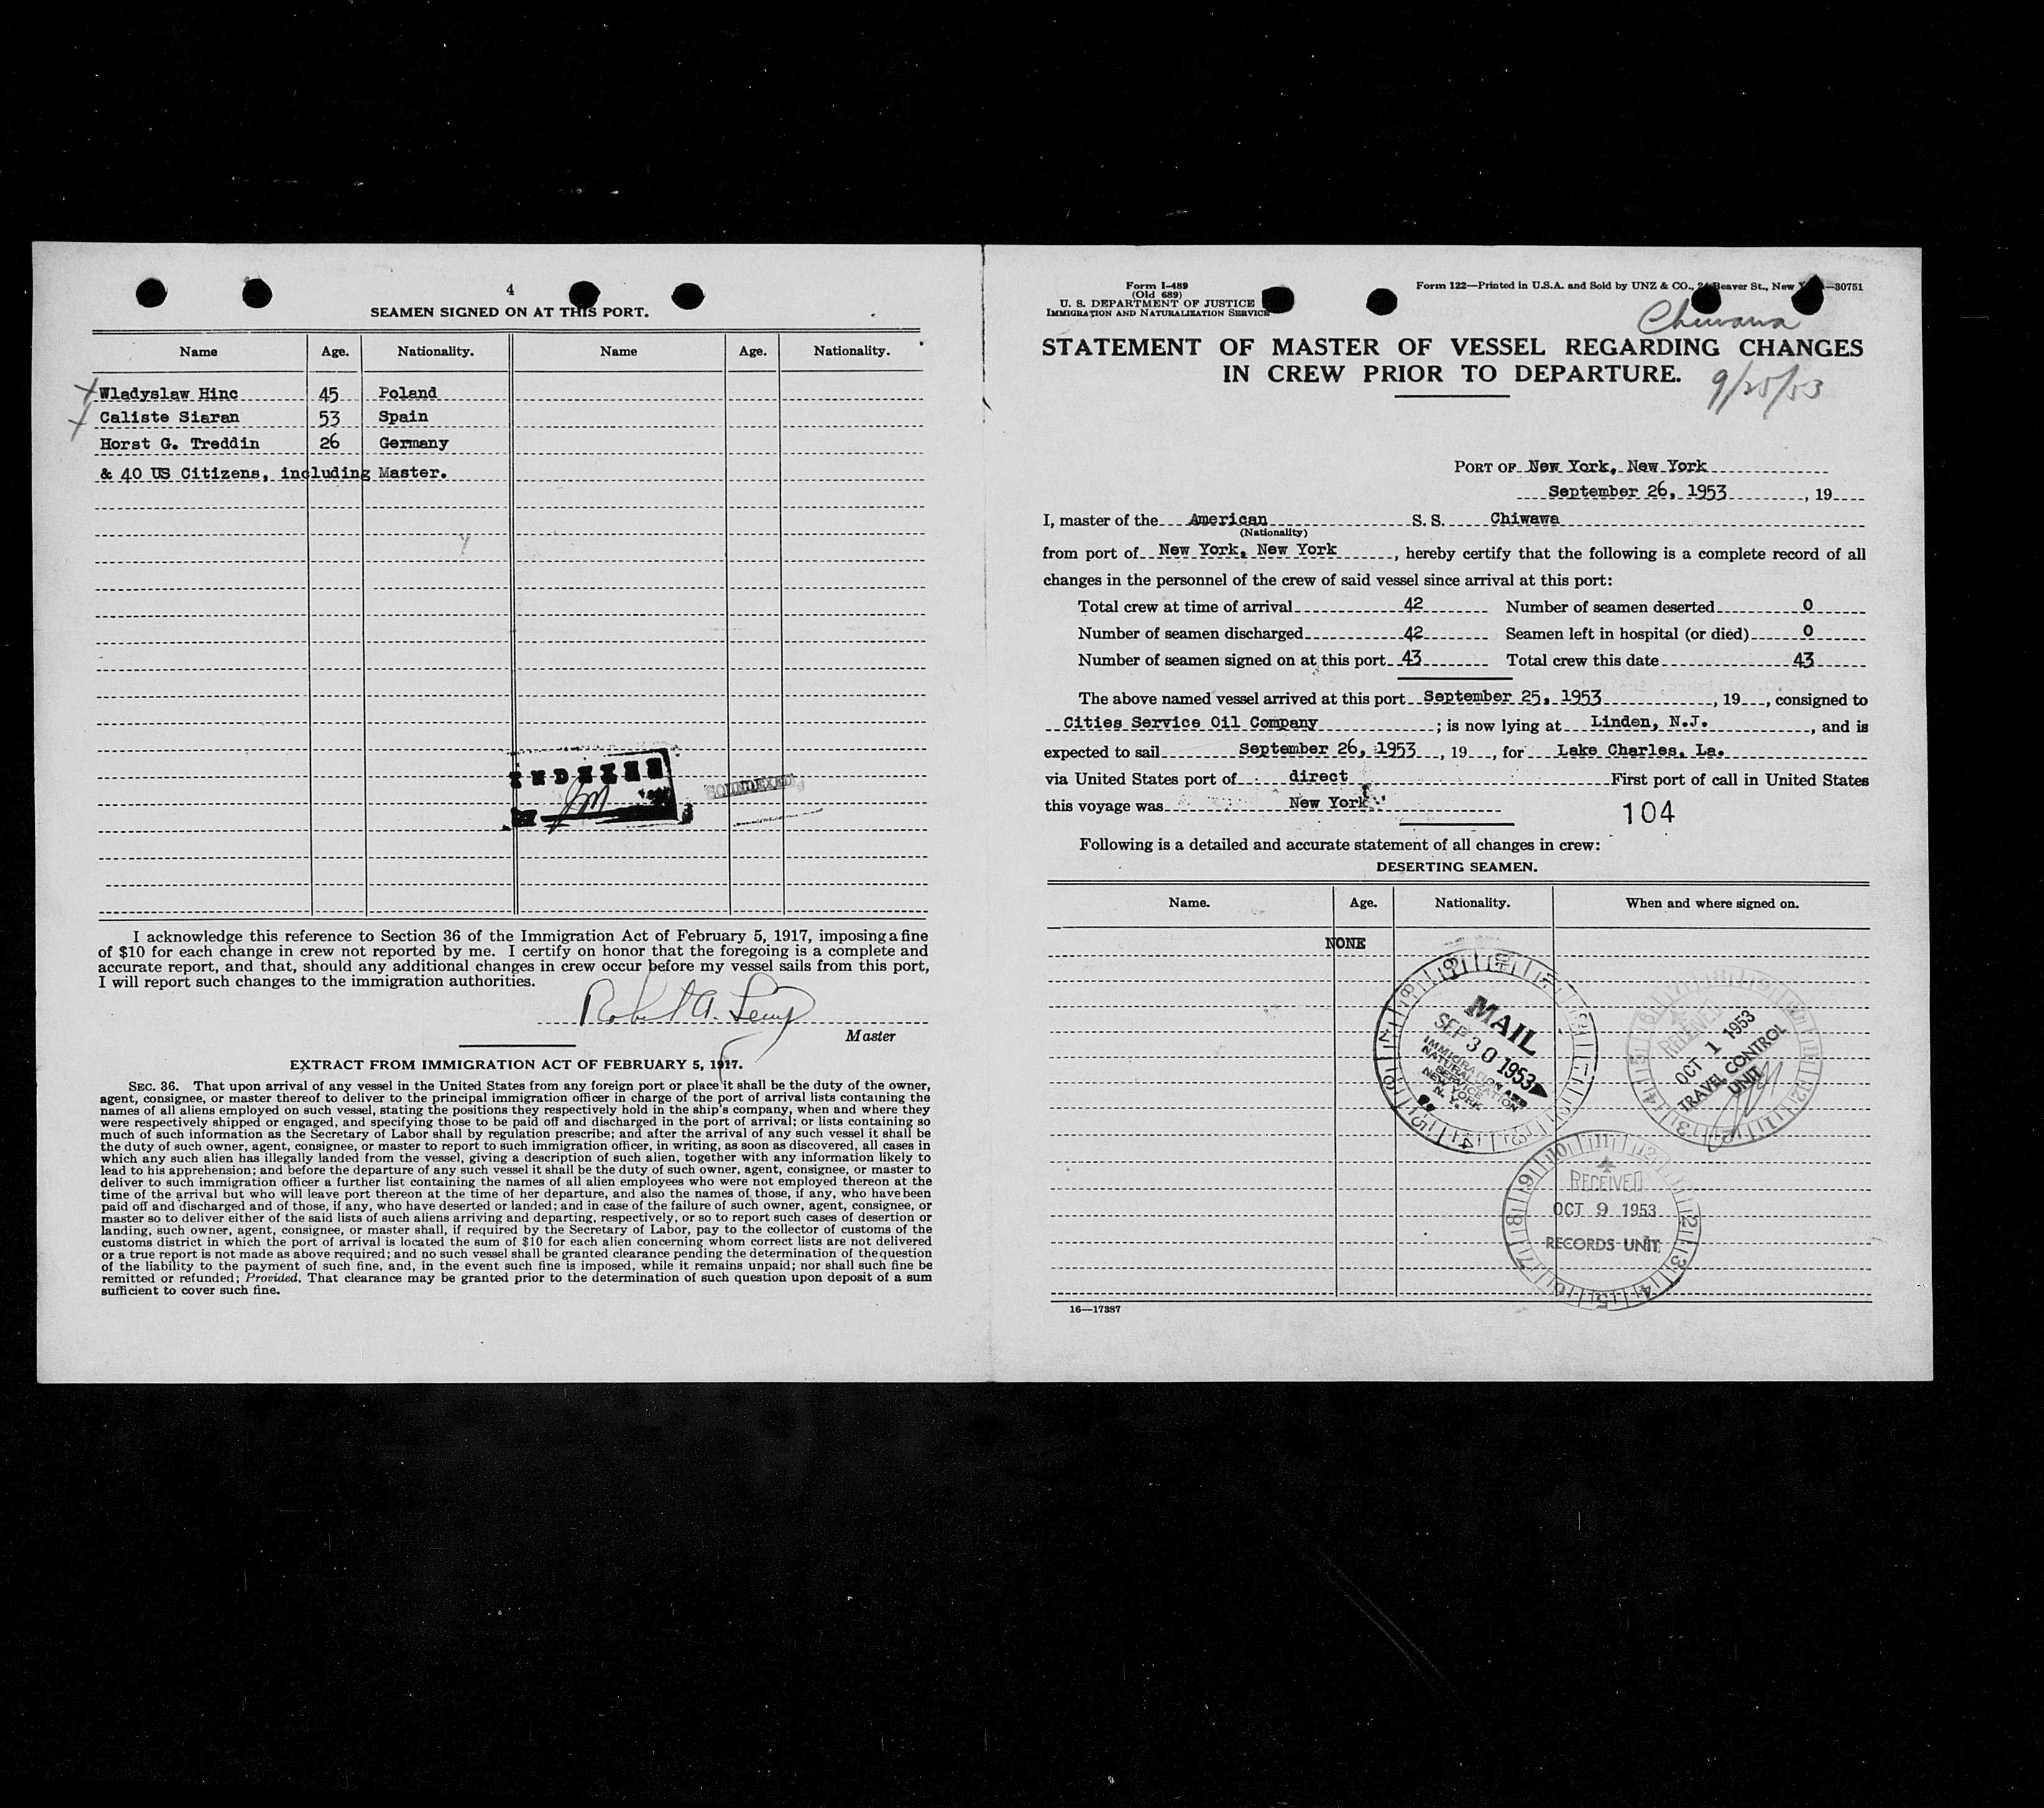 4
SEAMEN SIGNED ON AT THIS PORT.
Name Age. Nationality. Name Age. Nationality.
Wladyslaw Hinc 45 Poland
Caliste Siaran 53 Spain
Horst G. Treddin 26 Germany
& 40 US Citizens, including Master.
INDEXED
SOUNDEXED
I acknowledge this reference to Section 36 of the Immigration Act of February 5, 1917, imposing a fine
of $10 for each change in crew not reported by me. I certify on honor that the foregoing is a complete and
accurate report, and that, should any additional changes in crew occur before my vessel sails from this port,
I will report such changes to the immigration authorities.
Robert A.
Master
EXTRACT FROM IMMIGRATION ACT OF FEBRUARY 5, 1917.
SEC. 36. That upon arrival of any vessel in the United States from any foreign port or place it shall be the duty of the owner,
agent, consignee, or master thereof to deliver to the principal immigration officer in charge of the port of arrival lists containing the
names of all aliens employed on such vessel, stating the positions they respectively hold in the ship's company, when and where they
were respectively shipped or engaged, and specifying those to be paid off and discharged in the port of arrival; or lists containing so
much of such information as the Secretary of Labor shall by regulation prescribe; and after the arrival of any such vessel it shall be
the duty of such owner, agent, consignee, or master to report to such immigration officer, in writing, as soon as discovered, all cases in
which any such alien has illegally landed from the vessel, giving a description of such alien, together with any information likely to
lead to his apprehension; and before the departure of any such vessel it shall be the duty of such owner, agent, consignee, or master to
deliver to such immigration officer a further list containing the names of all alien employees who were not employed thereon at the
time of the arrival but who will leave port thereon at the time of her departure, and also the names of those, if any, who have been
paid off and discharged and of those, if any, who have deserted or landed; and in case of the failure of such owner, agent, consignee, or
master so to deliver either of the said lists of such aliens arriving and departing, respectively, or so to report such cases of desertion or
landing, such owner, agent, consignee, or master shall, if required by the Secretary of Labor, pay to the collector of customs of the
customs district in which the port of arrival is located the sum of $10 for each alien concerning whom correct lists are not delivered
or a true report is not made as above required; and no such vessel shall be granted clearance pending the determination of the question
of the liability to the payment of such fine, and, in the event such fine is imposed, while it remains unpaid; nor shall such fine be
remitted or refunded; Provided, That clearance may be granted prior to the determination of such question upon deposit of a sum
sufficient to cover such fine.
Form I-489
(Old 689)
U. S. DEPARTMENT OF JUSTICE
IMMIGRATION AND NATURALIZATION SERVICE
Form 122—Printed in U.S.A. and Sold by UNZ & CO., Beaver St., New —30751
Chiwawa
STATEMENT OF MASTER OF VESSEL REGARDING CHANGES
IN CREW PRIOR TO DEPARTURE.
9/25/53
PORT OF New York, New York
September 26, 1953, 19
I, master of the American S. S. Chiwawa
(Nationality)
from port of New York, New York, hereby certify that the following is a complete record of all
changes in the personnel of the crew of said vessel since arrival at this port:
Total crew at time of arrival 42 Number of seamen deserted 0
Number of seamen discharged 42 Seamen left in hospital (or died) 0
Number of seamen signed on at this port 43 Total crew this date 43
The above named vessel arrived at this port September 25, 1953, 19, consigned to
Cities Service Oil Company; is now lying at Linden, N.J., and is
expected to sail September 26, 1953, 19, for Lake Charles, La.
via United States port of direct First port of call in United States
this voyage was New York
104
Following is a detailed and accurate statement of all changes in crew:
DESERTING SEAMEN.
Name. Age. Nationality. When and where signed on.
NONE
MAIL
SEP 30 1953
IMMIGRATION AND
NATURALIZATION
SERVICE
NEW YORK
N. Y.
RECEIVED
OCT 1 1953
TRAVEL CONTROL
UNIT
RECEIVED
OCT 9 1953
RECORDS UNIT
16—17387